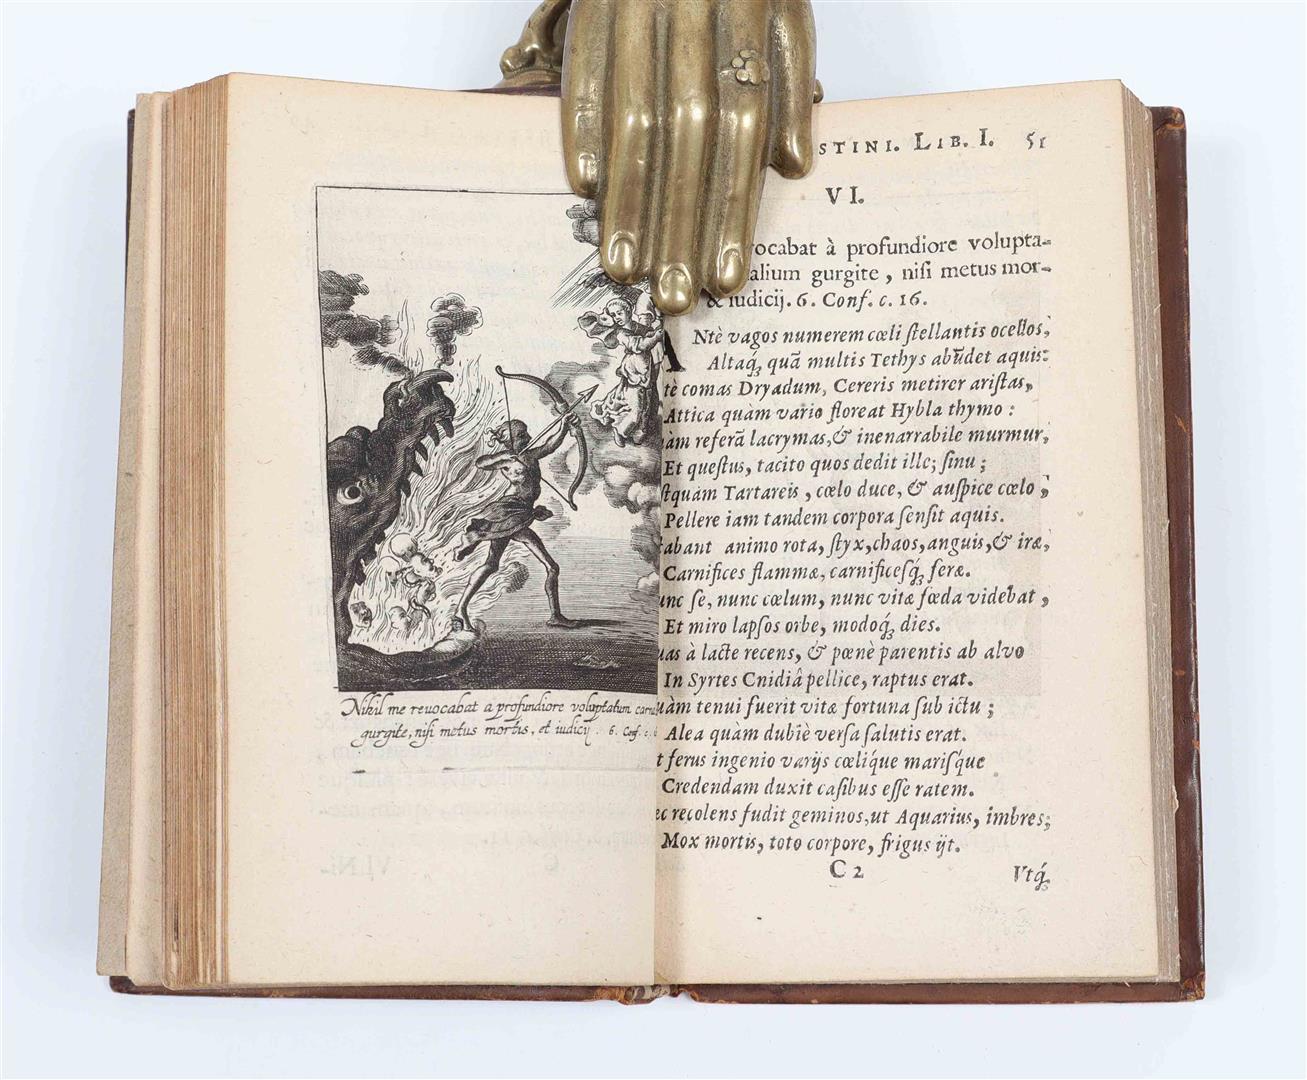 Nihil me reuocabat a profundiore voluptatum
gurgite, nisi metus mortis, et iudicij. 6. Conf. c.
STINI. LIB. I. 51
VI.
ocabat à profundiore volupta-
alium gurgite, niſi metus mor-
& iudicij. 6. Conf. c. 16.
ANtè vagos numerem cœli ſtellantis ocellos,
Altaq́; quā multis Tethys abūdet aquis:
tè comas Dryadum, Cereris metirer ariſtas,
Attica quàm vario floreat Hybla thymo:
àm referā lacrymas, & inenarrabile murmur,
Et queſtus, tacito quos dedit ille; ſinu;
ſtquàm Tartareis, cœlo duce, & auſpice cœlo,
Pellere iam tandem corpora ſenſit aquis.
tabant animo rota, ſtyx, chaos, anguis, & iræ,
Carnifices flammæ, carnificeſq́; feræ.
unc ſe, nunc cœlum, nunc vitæ fœda videbat,
Et miro lapſos orbe, modoq́; dies.
uas à lacte recens, & pœnè parentis ab alvo
In Syrtes Cnidiâ pellice, raptus erat.
uàm tenui fuerit vitæ fortuna ſub ictu;
Alea quàm dubiè verſa ſalutis erat.
t ferus ingenio varijs cœlique mariſq́ue
Credendam duxit caſibus eſſe ratem.
ec recolens fudit geminos, ut Aquarius, imbres;
Mox mortis, toto corpore, frigus ijt.
C 2 Vtq́;